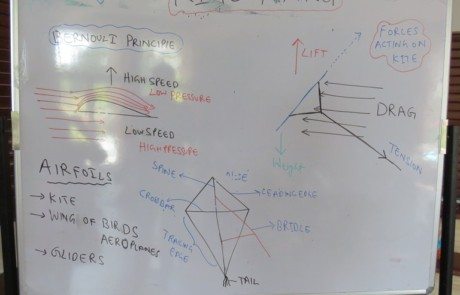 BERNOULI PRINCIPLE
HIGH SPEED
LOW PRESSURE
LOW SPEED
HIGH PRESSURE
FORCES
ACTING ON
KITE
LIFT
DRAG
Weight
TENSION
AIRFOILS
→ KITE
→ WING OF BIRDS
AEROPLANES
→ GLIDERS
SPINE
NOSE
LEADING EDGE
CROBBAR
BRIDLE
TRAILING
EDGE
TAIL